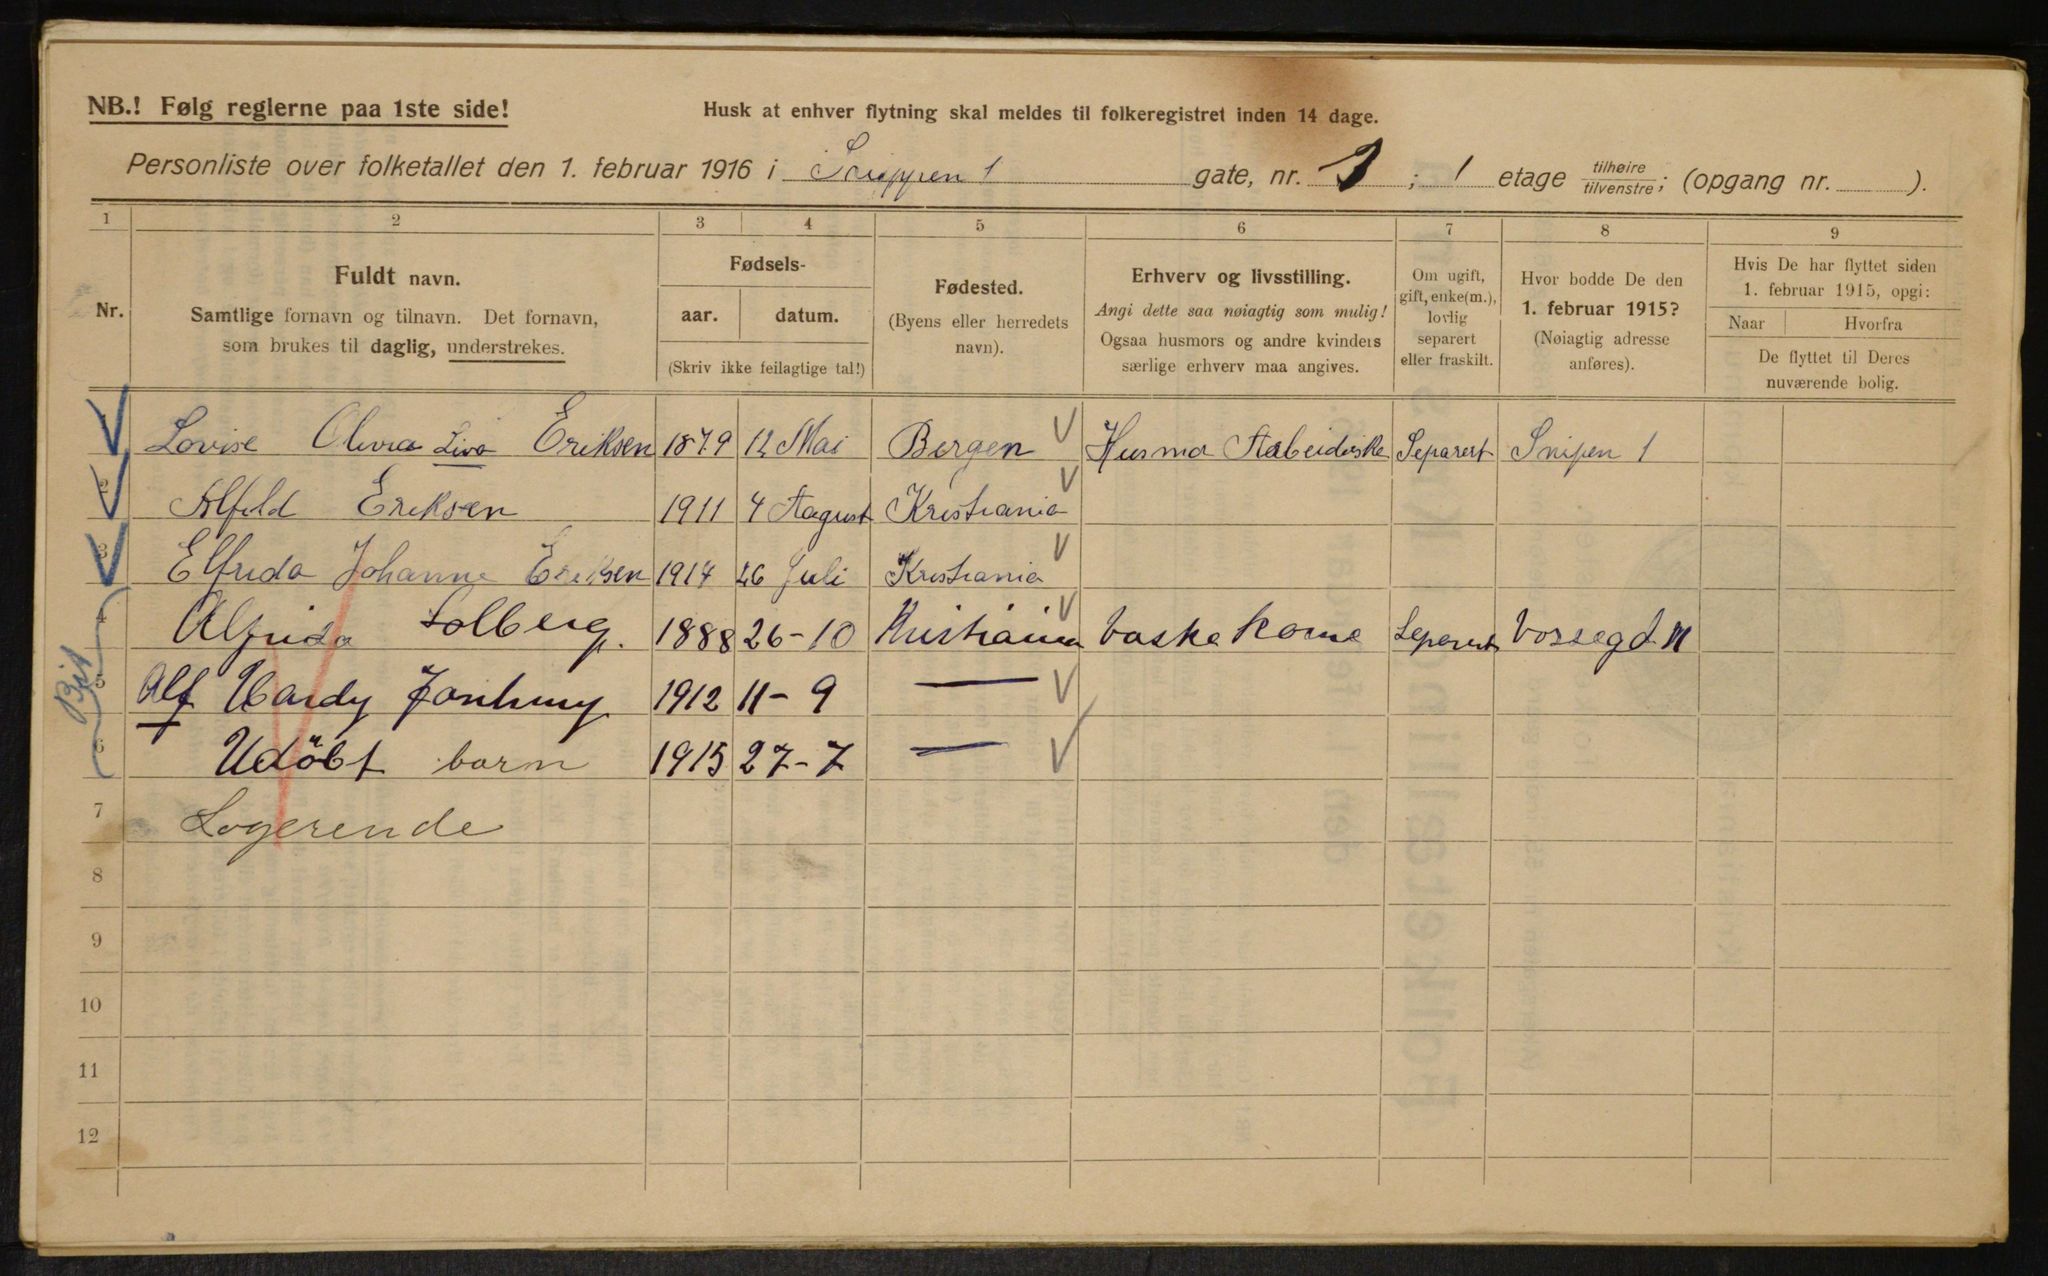 NB.! Følg reglerne paa 1ste side!
Husk at enhver flytning skal meldes til folkeregistret inden 14 dage.
Personliste over folketallet den 1. februar 1916 i 1 gate, nr. ; 1 etage tilhøire tilvenstre; (opgang nr. ).
1 2 3 4 5 6 7 8 9
Nr.
Fuldt navn.
Samtlige fornavn og tilnavn. Det fornavn,
som brukes til daglig, understrekes.
Fødsels-
aar. datum.
(Skriv ikke feilagtige tal!)
Fødested.
(Byens eller herredets
navn).
Erhverv og livsstilling.
Angi dette saa nøiagtig som mulig!
Ogsaa husmors og andre kvinders
særlige erhverv maa angives.
Om ugift,
gift, enke(m.),
lovlig
separert
eller fraskilt.
Hvor bodde De den
1. februar 1915?
(Nøiagtig adresse
anføres).
Hvis De har flyttet siden
1. februar 1915, opgi:
Naar Hvorfra
De flyttet til Deres
nuværende bolig.
Lovise Olivia Liva Eriksen 1879 12 Mai Bergen Husmor Separert Snipen 1
2 Alfild Eriksen 1911 4 August Kristiania
3 Elfrida Johanne Eriksen 1914 26 Juli Kristiania
4 Alfrida Solberg. 1888 26-10 Kristiania Vaskekone Seperert
5 Alf Hardy 1912 11-9 —
6 Udöbt barn 1915 27-7 —
7 Logerende
8
9
10
11
12